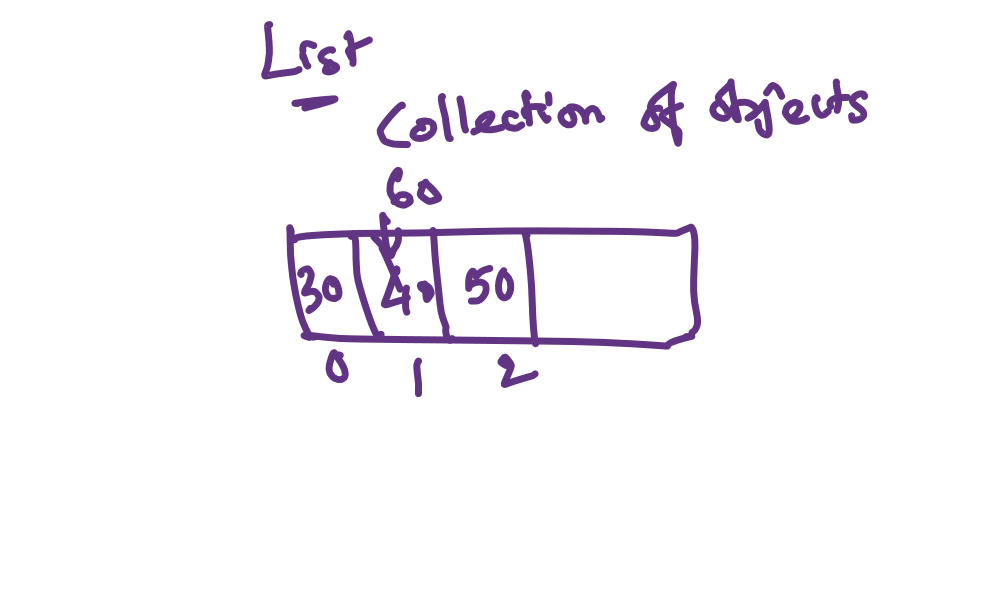 List
Collection of objects
60
30 40 50
0 1 2